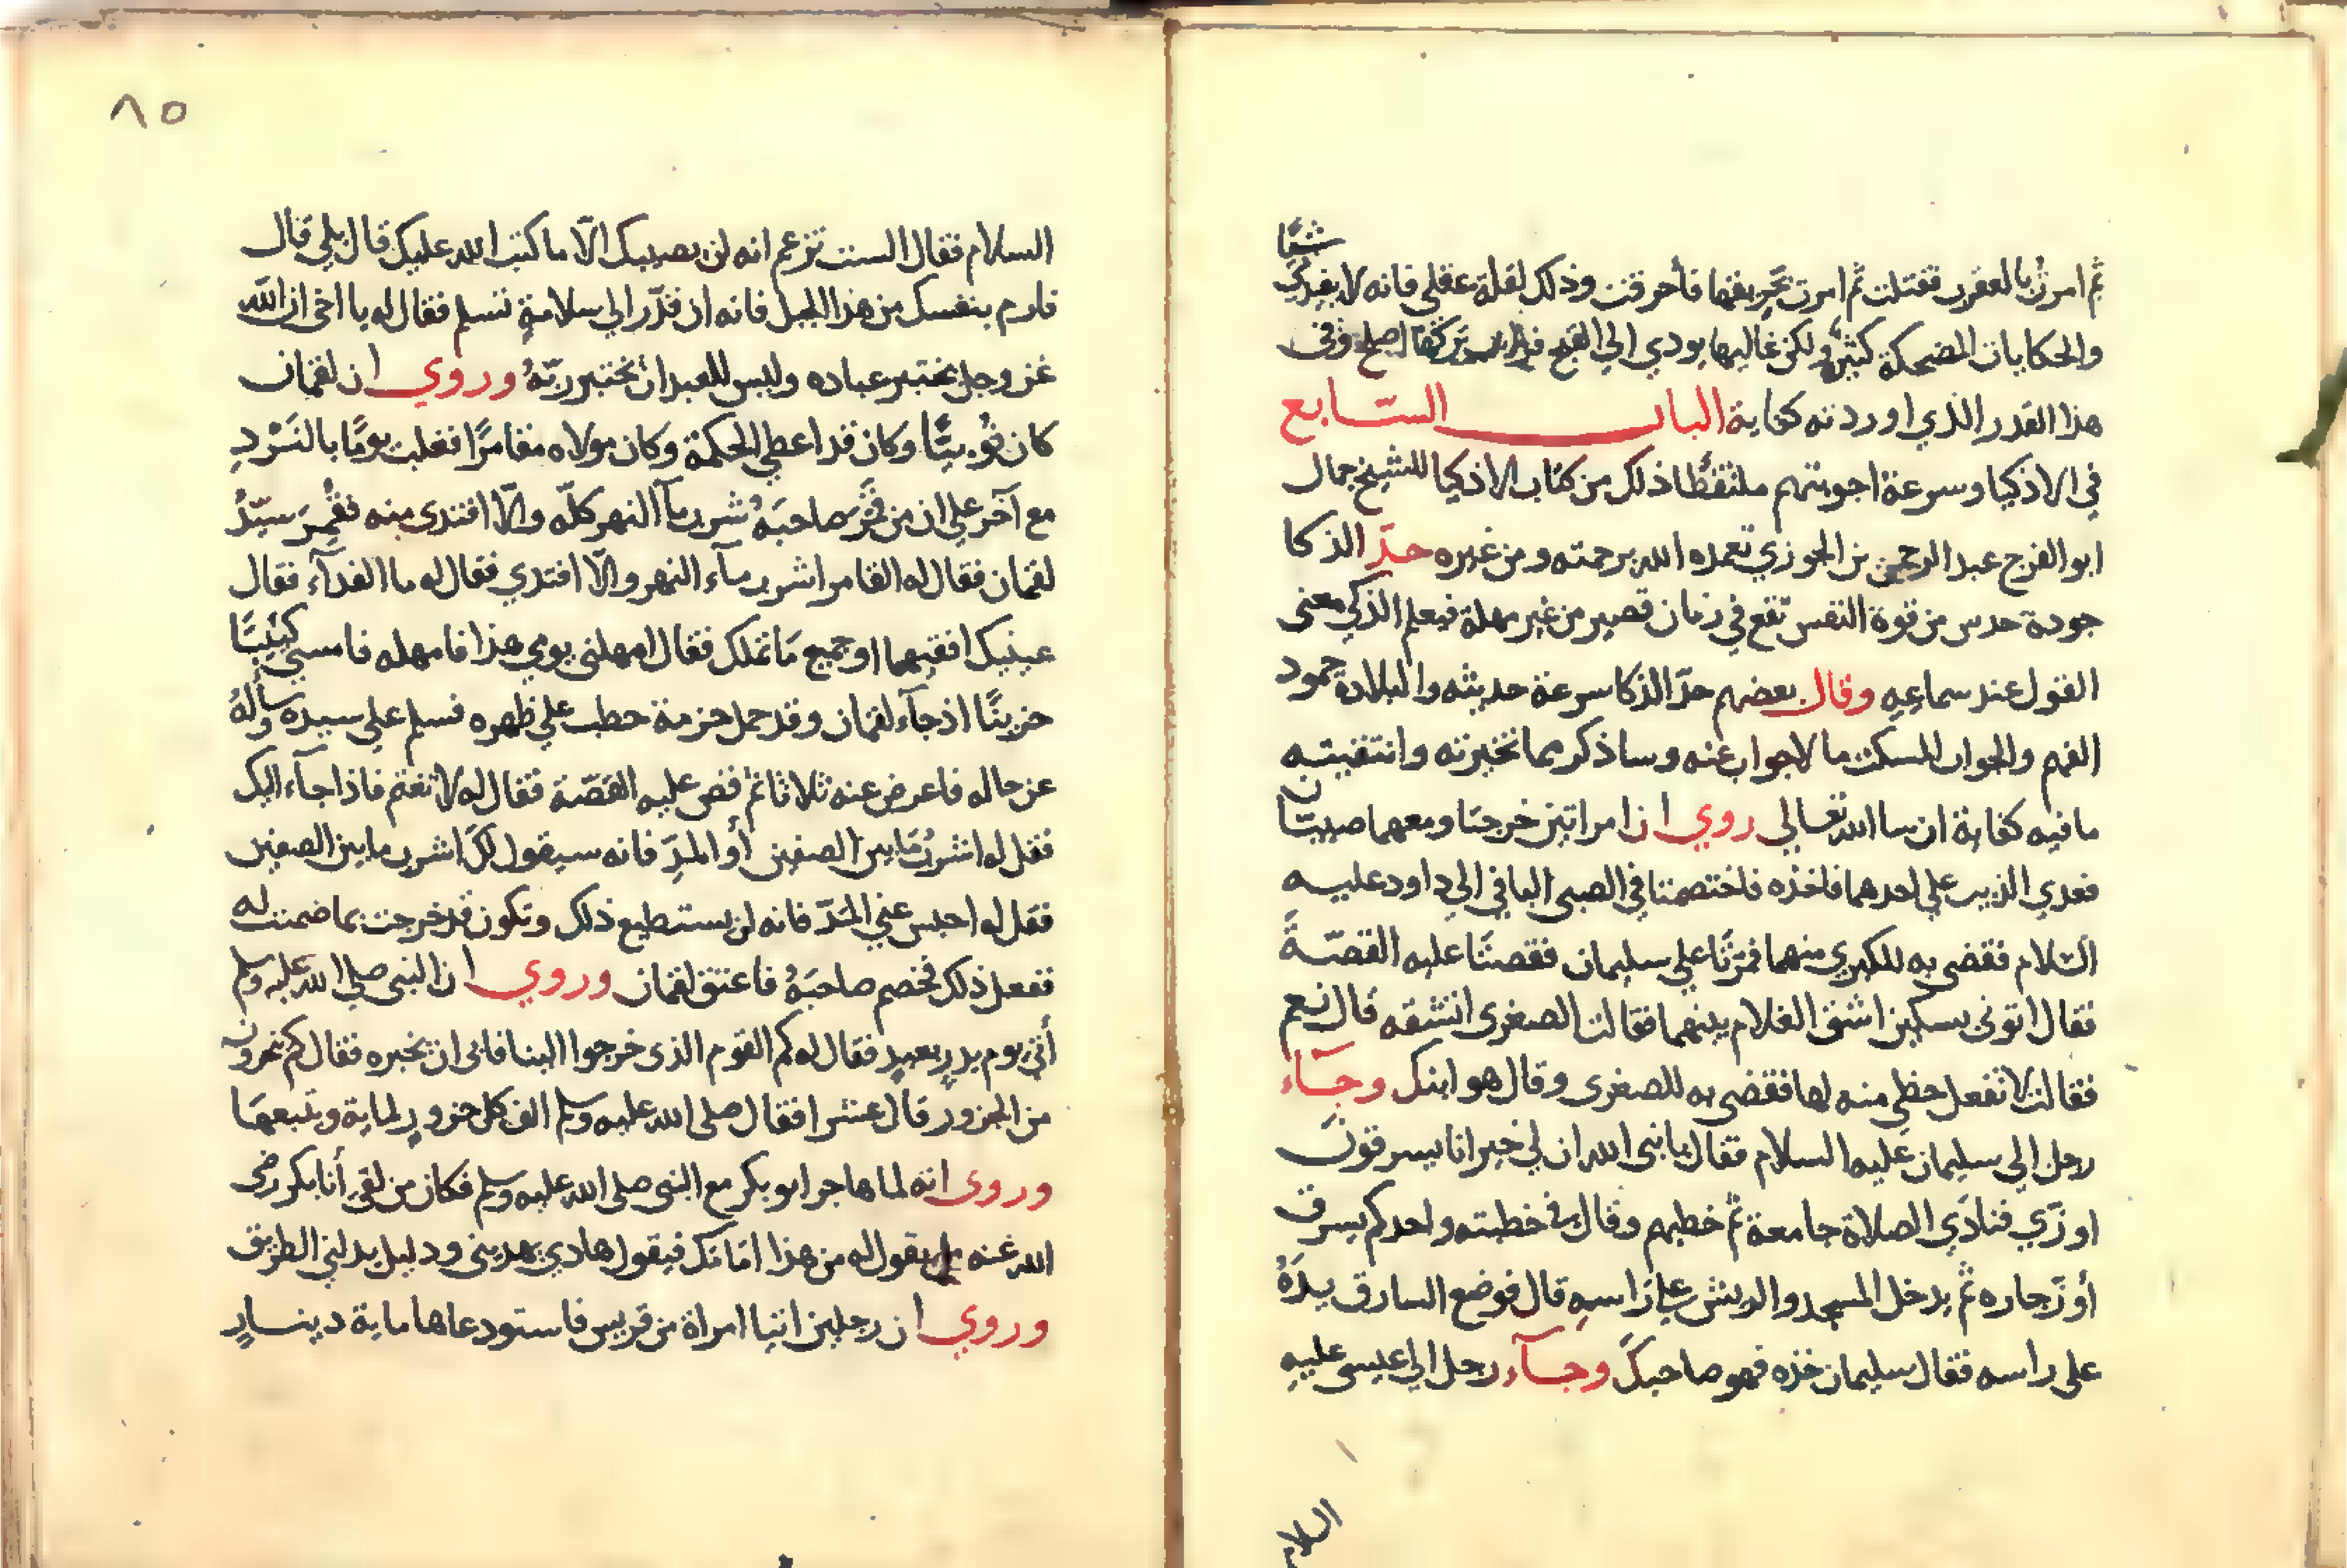 شيًا
ثم امرت بالعقرب فقتلت ثم امرت بتحريقها فأحرقت وذلك لقلة عقلي فانه لا يفيدك
والحكايات المضحكة كثيرة ولكن غالبها يودي الي القبح تركها اصلح وفى
هذا القدر الذي اوردته كفاية الباب السّابع
في الاذكيا وسرعة اجوبتهم ملتقطا ذلك من كتاب الاذكيا للشيخ جمال
ابو الفرج عبد الرحمن بن الجوزي تغمده الله برحمته ومن غيره حدّ الذكا
جودة حدس من قوة النفس تقع في زمان قصير من غير مهلة فيعلم الذكي معنى
القول عند سماعِهِ وقال بعضهم حدّ الذكا سرعة حديثه والبلادة جمود
الفهم والجواب المسكت ما لا جواب عنه وساذكر مما تخيرته وانتقيته
ما فيه كفاية ان شا الله تعالي روي ان امراتين خرجتا ومعهما صبيّان
فعدي الذيب علي احدهما فاخذه فاختصمتا في الصبى الباقي الي داود عليه
السّلام فقضى به للكبري منهما فمرّتا علي سليمان فقصتا عليه القصّة
فقال اتونى بسكين اشق الغلام بينهما فقالت الصغرى اتشقه قال نعم
فقالت لا تفعل حظي منه لها فقضى به للصغرى وقال هو ابنك وجَآء
رجل الي سليمان عليه السلام فقال يا نبى الله ان لي جيرانا يسرقون
اوزّي فنادَي الصلاة جامعة ثم خطبهم وقال في خطبته واحدكم يسرق
أوزّ جاره ثم يدخل المسجد والريش علي راسهِ قال فوضع السارق يدَهُ
على راسه فقال سليمان خذه فهو صاحبك وجآء رجل الي عيسى عليهِ
السلام
٨٥
السلام فقال الست تزعم انه لن يصيبك الّا ما كتب الله عليك قال بلي قال
فارم بنفسك من هذا الجبل فانه ان قدّر الي سلامةٍ تسلم فقال له يا اخى ان الله
عز وجل يختبر عباده وليس للعبد ان يختبر ربّهُ وروي ان لقمان
كان نُوبيًّا وكان قد اعطي الحكمة وكان مولاه مقامرًا فغلب يومًا بالنَرْدِ
مع آخر علي ان من قمَر صاحبَهُ شرب مآ النهر كلّه والّا افتدى منه فقُمِرَ سيّدُ
لقمان فقال له القامر اشرب مآء النهر والّا افتدي فقال له ما الفدآء فقال
عينيك افقيهما او جميع مَا تملك فقال امهلنى يومي هذا فامهله فامسي كئيبًا
حزينًا اذ جآء لقمان وقد حمل حزمة حطب علي ظهره فسلم علي سيده وسأله
عن حاله فاعرض عنه ثلاثا ثم قص عليه القصّة فقال له لا تغتم فاذا جآء اليك
فقل له اشرب مَا بين الصفين أو المدِّ فانه سيقول لكَ اشرب ما بين الصفين
فقل له احبس عني المَدّ فانه لن يستطيع ذلك وتكون قد خرجت بما ضمنت له
ففعل ذلك فخصم صاحبَهُ فاعتق لقمان وروي ان النبى صلي الله عليه وسلم
أتى يوم بدرٍ بعبدٍ فقال له كم القوم الذى خرجوا الينا فابى ان يخبره فقال كم نحرون
من الجزور قال عشرا فقال صلى الله عليه وسلم الف كل جزور لماية ويتبعهَا
وروى انه لما هاجر ابو بكر مع النبى صلى الله عليه وسلم فكان من لقى أبا بكر رضى
الله عنه يقول له من هذا امَامَك فيقول هادي يهدينى ودليل يدلني الطريق
وروي ان رجلين اتيا امراة من قريس فاستودعاها ماية دينارٍ